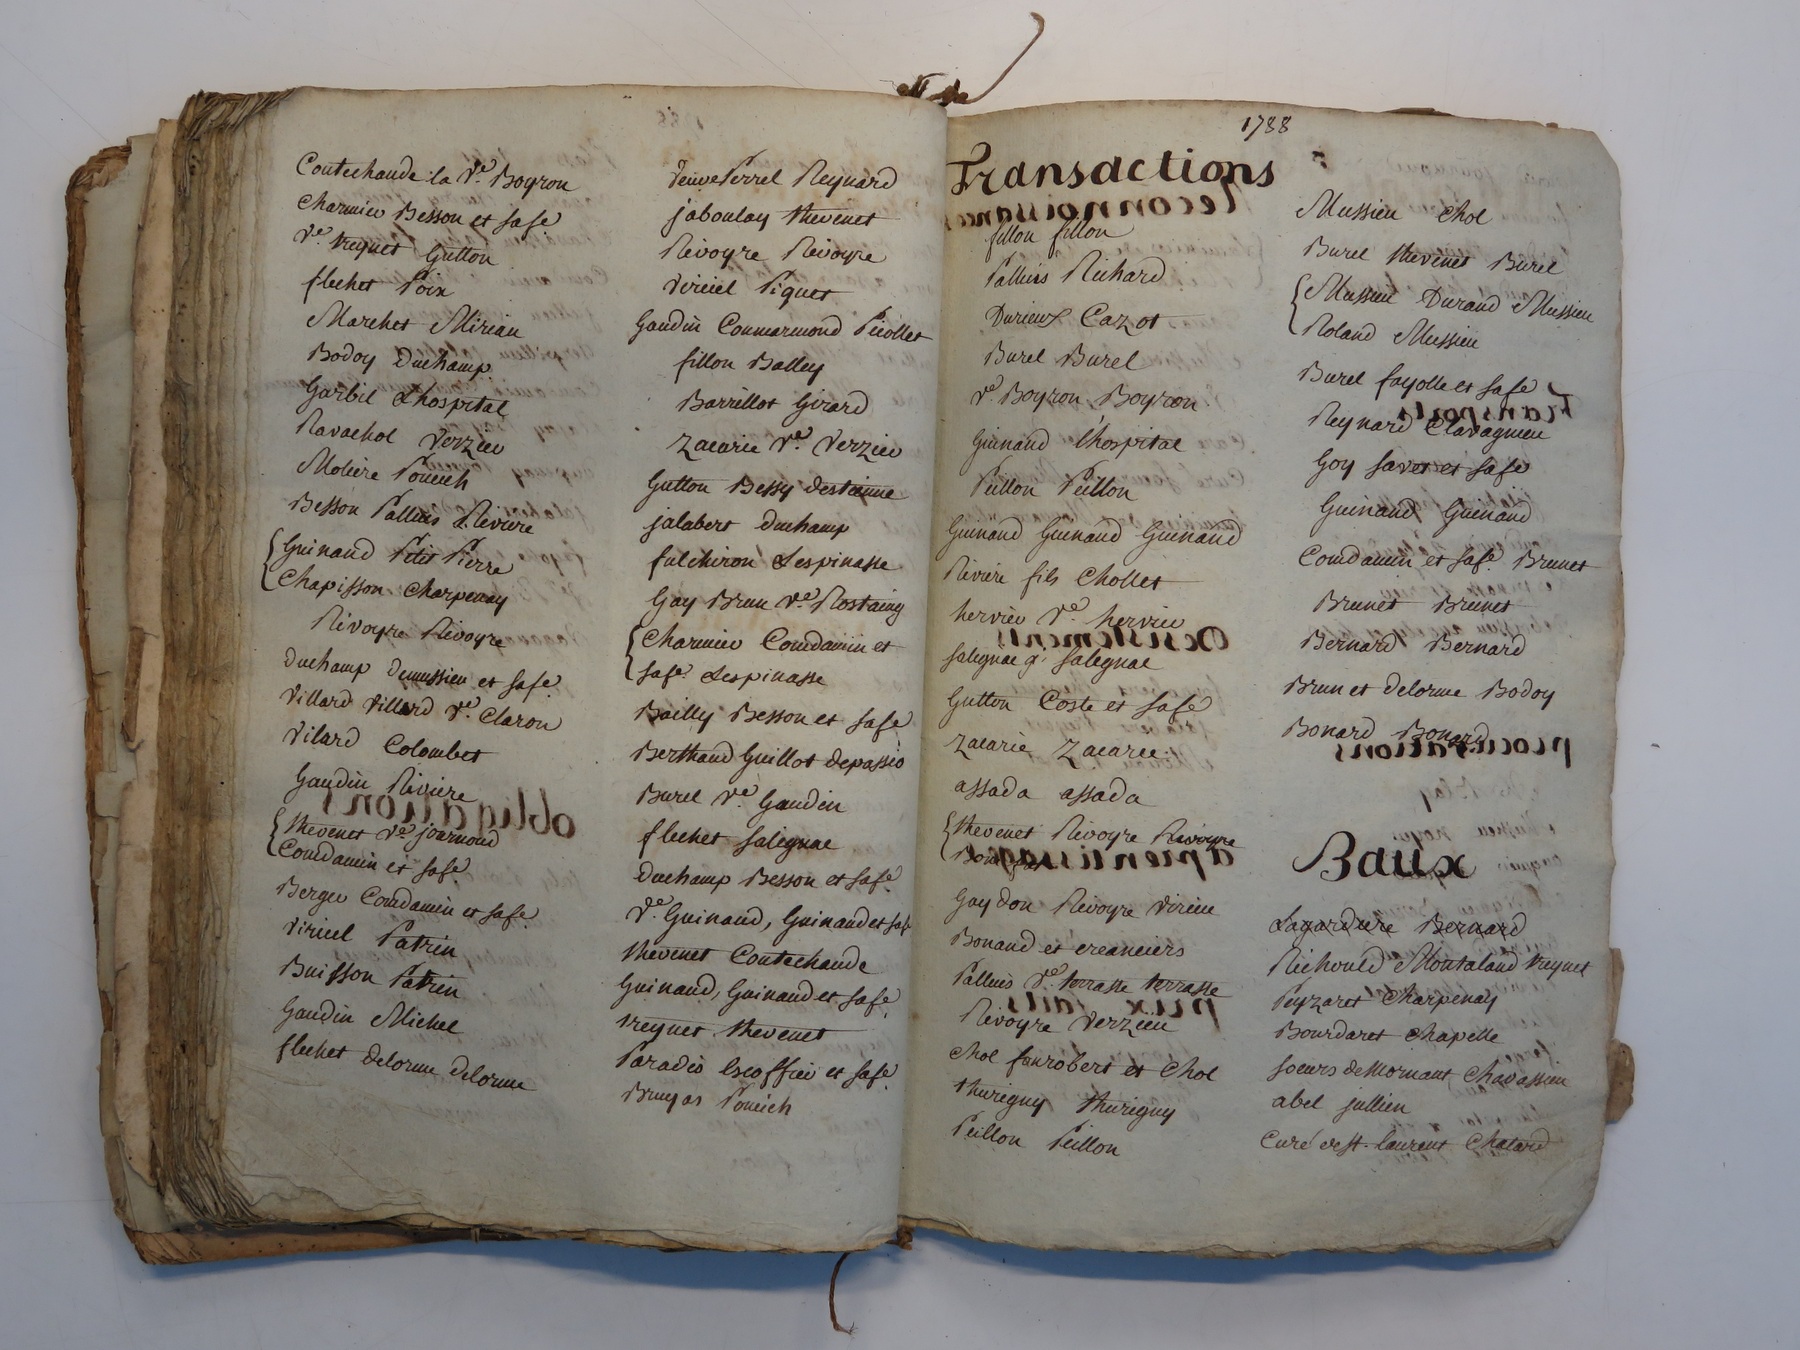 Coutechaude la Ve. Boyron
Charmieu Besson et safe
Ve. treynet Gutton
flechet Poix
Marchet Mirian
Bodoy Duchamp
Garbil Lhospital
Ravachol Verzieu
Moliere Poncich
Besson Palluis Riviere
Guinand Petit Pierre
Chapisson Charpenay
Rivoyre Rivoyre
duchamp demussieu et safe
Villard Villard Ve. Claron
Vilard Colombet
Gaudin Riviere
thevenet Ve journoud
Condamin et safe
Berger Condamin et safe
Viricel Patrin
Buisson Patrin
Gaudin Michel
flechet delorme delorme
Veuve Perrel Reynard
jaboulay thevenet
Rivoyre Rivoyre
Viricel Piquet
Gaudin Commarmond Piollet
fillon Balley
Barrillot Girard
Zacarie Ve. Verzieu
Gutton Bessy destienne
jalabert duchamp
fulchiron Lespinasse
Gay Brun Ve. Rostaing
Charmieu Condamin et
safe Lespinasse
Bailly Besson et safe
Berthaud Guillot depassio
Burel Ve. Gaudin
flechet salignac
duchamp Besson et safe
Ve. Guinand, Guinand et safe
thevenet Coutechaude
Guinand, Guinand et safe
treynet thevenet
Paradis Escoffier et safe
Bruyas Poncich
1788
Transactions
fillon fillon
Palluis Richard
Durieux Cazot
Burel Burel
Ve. Boyron Boyron
Guinand Lhospital
Peillon Peillon
Guinand Guinand Guinand
Riviere fils Chollet
hervieu Ve. hervieu
salignac salignac
Gutton Coste et safe
Zacarie Zacarie
assada assada
thevenet Rivoyre Rivoyre
Gaydon Rivoyre Viricel
Bonand et creanciers
Palluis Ve. terrasse terrasse
Rivoyre Verzieu
Chol fonrobert et Chol
thurigny thurigny
Peillon Peillon
Mussieu Chol
Burel thevenet Burel
Mussieu Durand Mussieu
Roland Mussieu
Burel fayolle et safe
Reynard Clavagnieu
Goy savet et safe
Guinand Guinand
Condamin et safe. Brunet
Brunet Brunet
Bernard Bernard
Brun et delorme Bodoy
Bonard Bonard
Baux
Lagardure Bernard
Richould Montaland treynet
Peyzaret Charpenay
Bourdaret Chapelle
soeurs de Mornant Chavassieu
abel jullien
Curé de st. laurent Chatard